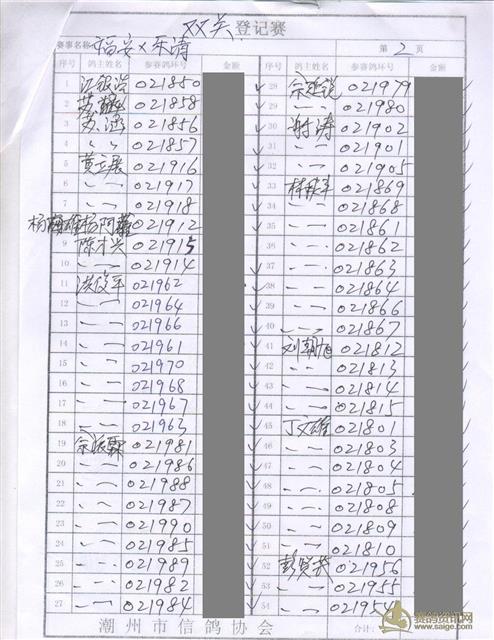 双关 登记赛
赛事名称 福安×乐清 第 2 页
序号 鸽主姓名 参赛鸽环号 金额 序号 鸽主姓名 参赛鸽环号 金额
1 江银浩 021850
2 021858
3 苏涵 021856
4 〃 〃 021857
5 黄立展 021916
6 〃 一 021917
7 〃 一 021918
021912
9 陈才兴 021915
10 〃 一 021914
11 洪俊平 021962
12 〃 一 021964
13 〃 一 021966
14 〃 一 021961
15 〃 一 021970
16 〃 一 021968
17 〃 一 021967
18 〃 一 021963
19 佘派霖 021981
20 〃 一 021986
21 〃 一 021988
22 〃 一 021987
23 〃 一 021990
24 〃 一 021985
25 〃 一 021989
26 〃 一 021982
27 〃 一 021984
28 021979
29 〃 一 021980
30 谢涛 021902
31 〃 一 021901
32 〃 一 021905
33 021869
34 〃 一 021868
35 〃 一 021861
36 〃 一 021862
37 〃 一 021863
38 〃 一 021864
39 〃 一 021866
40 〃 一 021867
41 刘朝旭 021812
42 〃 一 021813
43 〃 一 021814
44 〃 一 021815
45 丁文雄 021801
46 〃 一 021803
47 〃 一 021804
48 〃 一 021805
49 〃 一 021808
50 〃 一 021809
51 〃 一 021810
52 彭贤武 021956
53 〃 一 021955
54 〃 一 021954
潮州市信鸽协会 合计:
赛鸽资讯网
www.saige.com